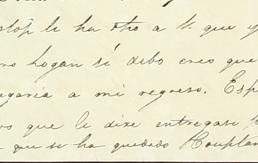 le ha dho a V. que y
no hogan sí debo creo que
garia a mi regreso. Esp
que le dixe entregase
que se ha quedado